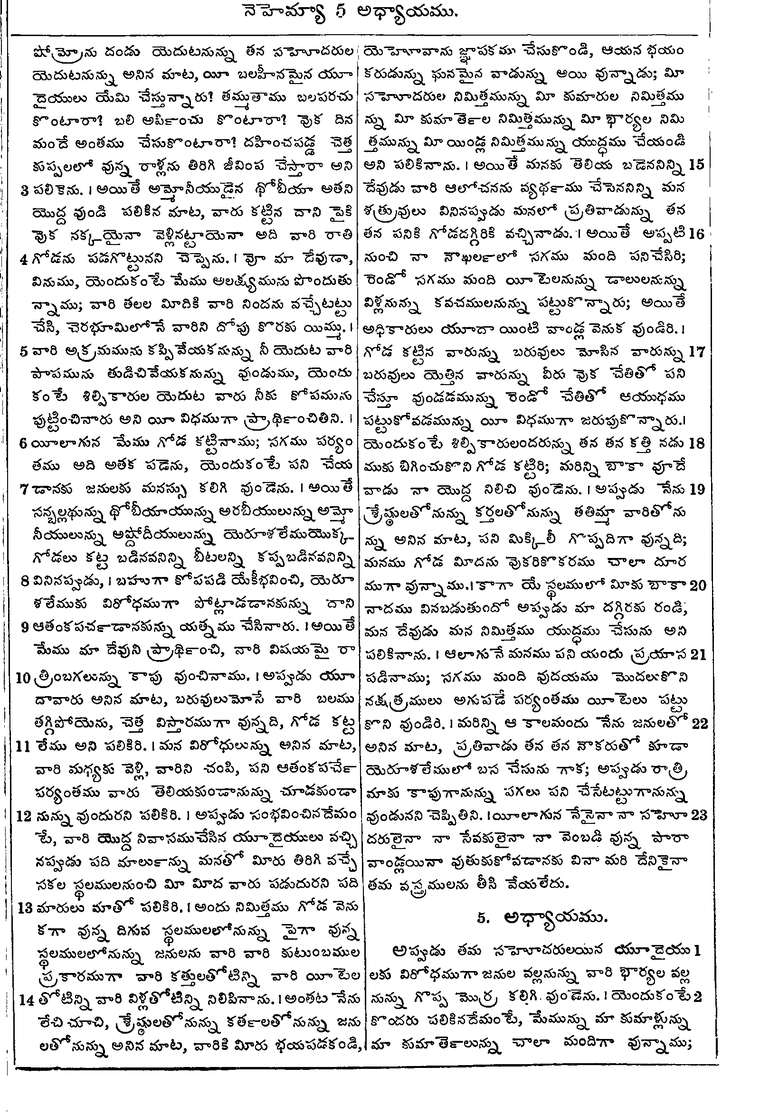 నెహెమ్యా 5 అధ్యాయము.
షోమ్రోను దండు యెదుటనున్ను తన సహోదరుల
యెదుటనున్ను అనిన మాట, యీ బలహీనమైన యూ
దైయులు యేమి చేస్తున్నారు? తమ్మును తాము బలపరచు
కొంటారా? బలి అర్పించు కొంటారా? వుక దిన
మందే అంతము చేసుకొంటారా? దహించపడ్డ చెత్త
కుప్పలలో వున్న రాళ్లను తిరిగి జీవింప చేస్తారా అని
3 పలికెను. । అయితే అమ్మోనీయుడైన థోబీయా అతని
యొద్ద వుండి పలికిన మాట, వారు కట్టిన దాని పైకి
వుక నక్కయైనా వెళ్లినట్టాయెనా అది వారి రాతి
4 గోడను పడగొట్టునని చెప్పెను. । వూ మా దేవుడా,
వినుము, యెందుకంటే మేము అలక్ష్యమును పొందుతు
న్నాము; వారి తలల మీదికి వారి నిందను వచ్చేటట్టు
చేసి, చెరభూమిలోనే వారిని దోపు కొరకు యిమ్ము. ।
5 వారి అక్రమమును కప్పివేయకనున్ను నీ యెదుట వారి
పాపమును తుడిచివేయకనున్ను వుండుము, యెందు
కంటే శిల్పికారుల యెదుట వారు నీకు కోపమును
పుట్టించినారు అని యీ విధముగా ప్రార్థించితిని. ।
6 యీలాగున మేము గోడ కట్టినాము; సగము పర్యం
తము అది అతక పడెను, యెందుకంటే పని చేయ
7 డానకు జనులకు మనస్సు కలిగి వుండెను. । అయితే
సన్బల్లథున్ను థోబీయాయున్ను అరబీయులున్ను అమ్మో
నీయులున్ను అష్దోదీయులున్ను యెరూశలేముయొక్క
గోడలు కట్ట బడినవనిన్ని బీటలన్ని కప్పబడినవనిన్ని
8 వినినప్పుడు, । బహుగా కోపపడి యేకీభవించి, యెరూ
శలేముకు విరోధముగా పోట్లాడడానకున్ను దాని
9 ఆతంకపర్చడానకున్ను యత్నము చేసినారు. । అయితే
మేము మా దేవుని ప్రార్థించి, వారి విషయమై రా
10 త్రింబగలున్ను కాపు వుంచినాము. । అప్పుడు యూ
దావారు అనిన మాట, బరువులుమోసే వారి బలము
తగ్గిపోయెను, చెత్త విస్తారముగా వున్నది, గోడ కట్ట
11 లేము అని పలికిరి. । మన విరోధులున్ను అనిన మాట,
వారి మధ్యకు వెళ్లి, వారిని చంపి, పని ఆతంకపర్చే
పర్యంతము వారు తెలియకుండానున్ను చూడకుండా
12 నున్ను వుందురని పలికిరి. । అప్పుడు సంభవించినదేమం
టే, వారి యొద్ద నివాసముచేసిన యూదైయులు వచ్చి
నప్పుడు పది మార్లున్ను మనతో మీరు తిరిగి వచ్చే
సకల స్థలములనుంచి మీ మీద వారు పడుదురని పది
13 మారులు మాతో పలికిరి. । అందు నిమిత్తము గోడ వెను
కగా వున్న దిగువ స్థలములలోనున్ను పైగా వున్న
స్థలములలోనున్ను జనులను వారి వారి కుటుంబముల
ప్రకారముగా వారి కత్తులతోటిన్ని వారి యీటెల
14 తోటిన్ని వారి విళ్లతోటిన్ని నిలిపినాను. । అంతట నేను
లేచి చూచి, శ్రేష్ఠులతోనున్ను కర్తలతోనున్ను జను
లతోనున్ను అనిన మాట, వారికి మీరు భయపడకండి,
యెహోవాను జ్ఞాపకము చేసుకొండి, ఆయన భయం
కరుడున్ను ఘనమైన వాడున్ను అయి వున్నాడు; మీ
సహోదరుల నిమిత్తమున్ను మీ కుమారుల నిమిత్తము
న్ను మీ కుమార్తెల నిమిత్తమున్ను మీ భార్యల నిమి
త్తమున్ను మీ యిండ్ల నిమిత్తమున్ను యుద్ధము చేయండి
అని పలికినాను. । అయితే మనకు తెలియ బడెననిన్ని 15
దేవుడు వారి ఆలోచనను వ్యర్థము చేసెననిన్ని మన
శత్రువులు వినినప్పుడు మనలో ప్రతివాడున్ను తన
తన పనికి గోడదగ్గిరికి వచ్చినాడు. । అయితే అప్పటి 16
నుంచి నా నౌఖర్లలో సగము మంది పనిచేసిరి;
రెండో సగము మంది యీటెలనున్ను డాలులనున్ను
విళ్లనున్ను కవచములనున్ను పట్టుకొన్నారు; అయితే
అధికారులు యూదా యింటి వాండ్ల వెనుక వుండిరి. ।
గోడ కట్టిన వారున్ను బరువులు మోసిన వారున్ను 17
బరువులు యెత్తిన వారున్ను వీరు వుక చేతితో పని
చేస్తూ వుండడమున్ను రెండో చేతితో ఆయుధము
పట్టుకోవడమున్ను యీ విధముగా జరుపుకొన్నారు.।
యెందుకంటే శిల్పికారులందరున్ను తన తన కత్తి నడు 18
ముకు బిగించుకొని గోడ కట్టిరి; మరిన్ని బాకా వూదే
వాడు నా యొద్ద నిలిచి వుండెను. । అప్పుడు నేను 19
శ్రేష్ఠులతోనున్ను కర్తలతోనున్ను తతిమ్మా వారితోను
న్ను అనిన మాట, పని మిక్కిలీ గొప్పదిగా వున్నది;
మనము గోడ మీదను వుకరికొకరము చాలా దూర
ముగా వున్నాము.। కాగా యే స్థలములో మీకు బాకా 20
నాదము వినబడుతుందో అప్పుడు మా దగ్గిరకు రండి;
మన దేవుడు మన నిమిత్తము యుద్ధము చేసును అని
పలికినాను. । ఆలాగునే మనము పని యందు ప్రయాస 21
పడినాము; సగము మంది వుదయము మొదలుకొని
నక్షత్రములు అగుపడే పర్యంతము యీటెలు పట్టు
కొని వుండిరి. । మరిన్ని ఆ కాలమందు నేను జనులతో 22
అనిన మాట, ప్రతివాడు తన తన నౌకరుతో కూడా
యెరూశలేములో బస చేసును గాక; అప్పుడు రాత్రి
మాకు కాపుగానున్ను పగలు పని చేసేటట్టుగానున్ను
వుండునని చెప్పితిని. ।యీలాగున నేనైనా నా సహో 23
దరులైనా నా సేవకులైనా నా వెంబడి వున్న పారా
వాండ్లయినా వుతుకుకోవడానకు వినా మరి దేనికైనా
తమ వస్త్రములను తీసి వేయలేదు.
5. అధ్యాయము.
అప్పుడు తమ సహోదరులయిన యూదైయు 1
లకు విరోధముగా జనుల వల్లనున్ను వారి భార్యల వల్ల
నున్ను గొప్ప మొర్ర కలిగి వుండెను. । యెందుకంటే 2
కొందరు పలికినదేమంటే, మేమున్ను మా కుమాళ్లున్ను
మా కుమార్తెలున్ను చాలా మందిగా వున్నాము;